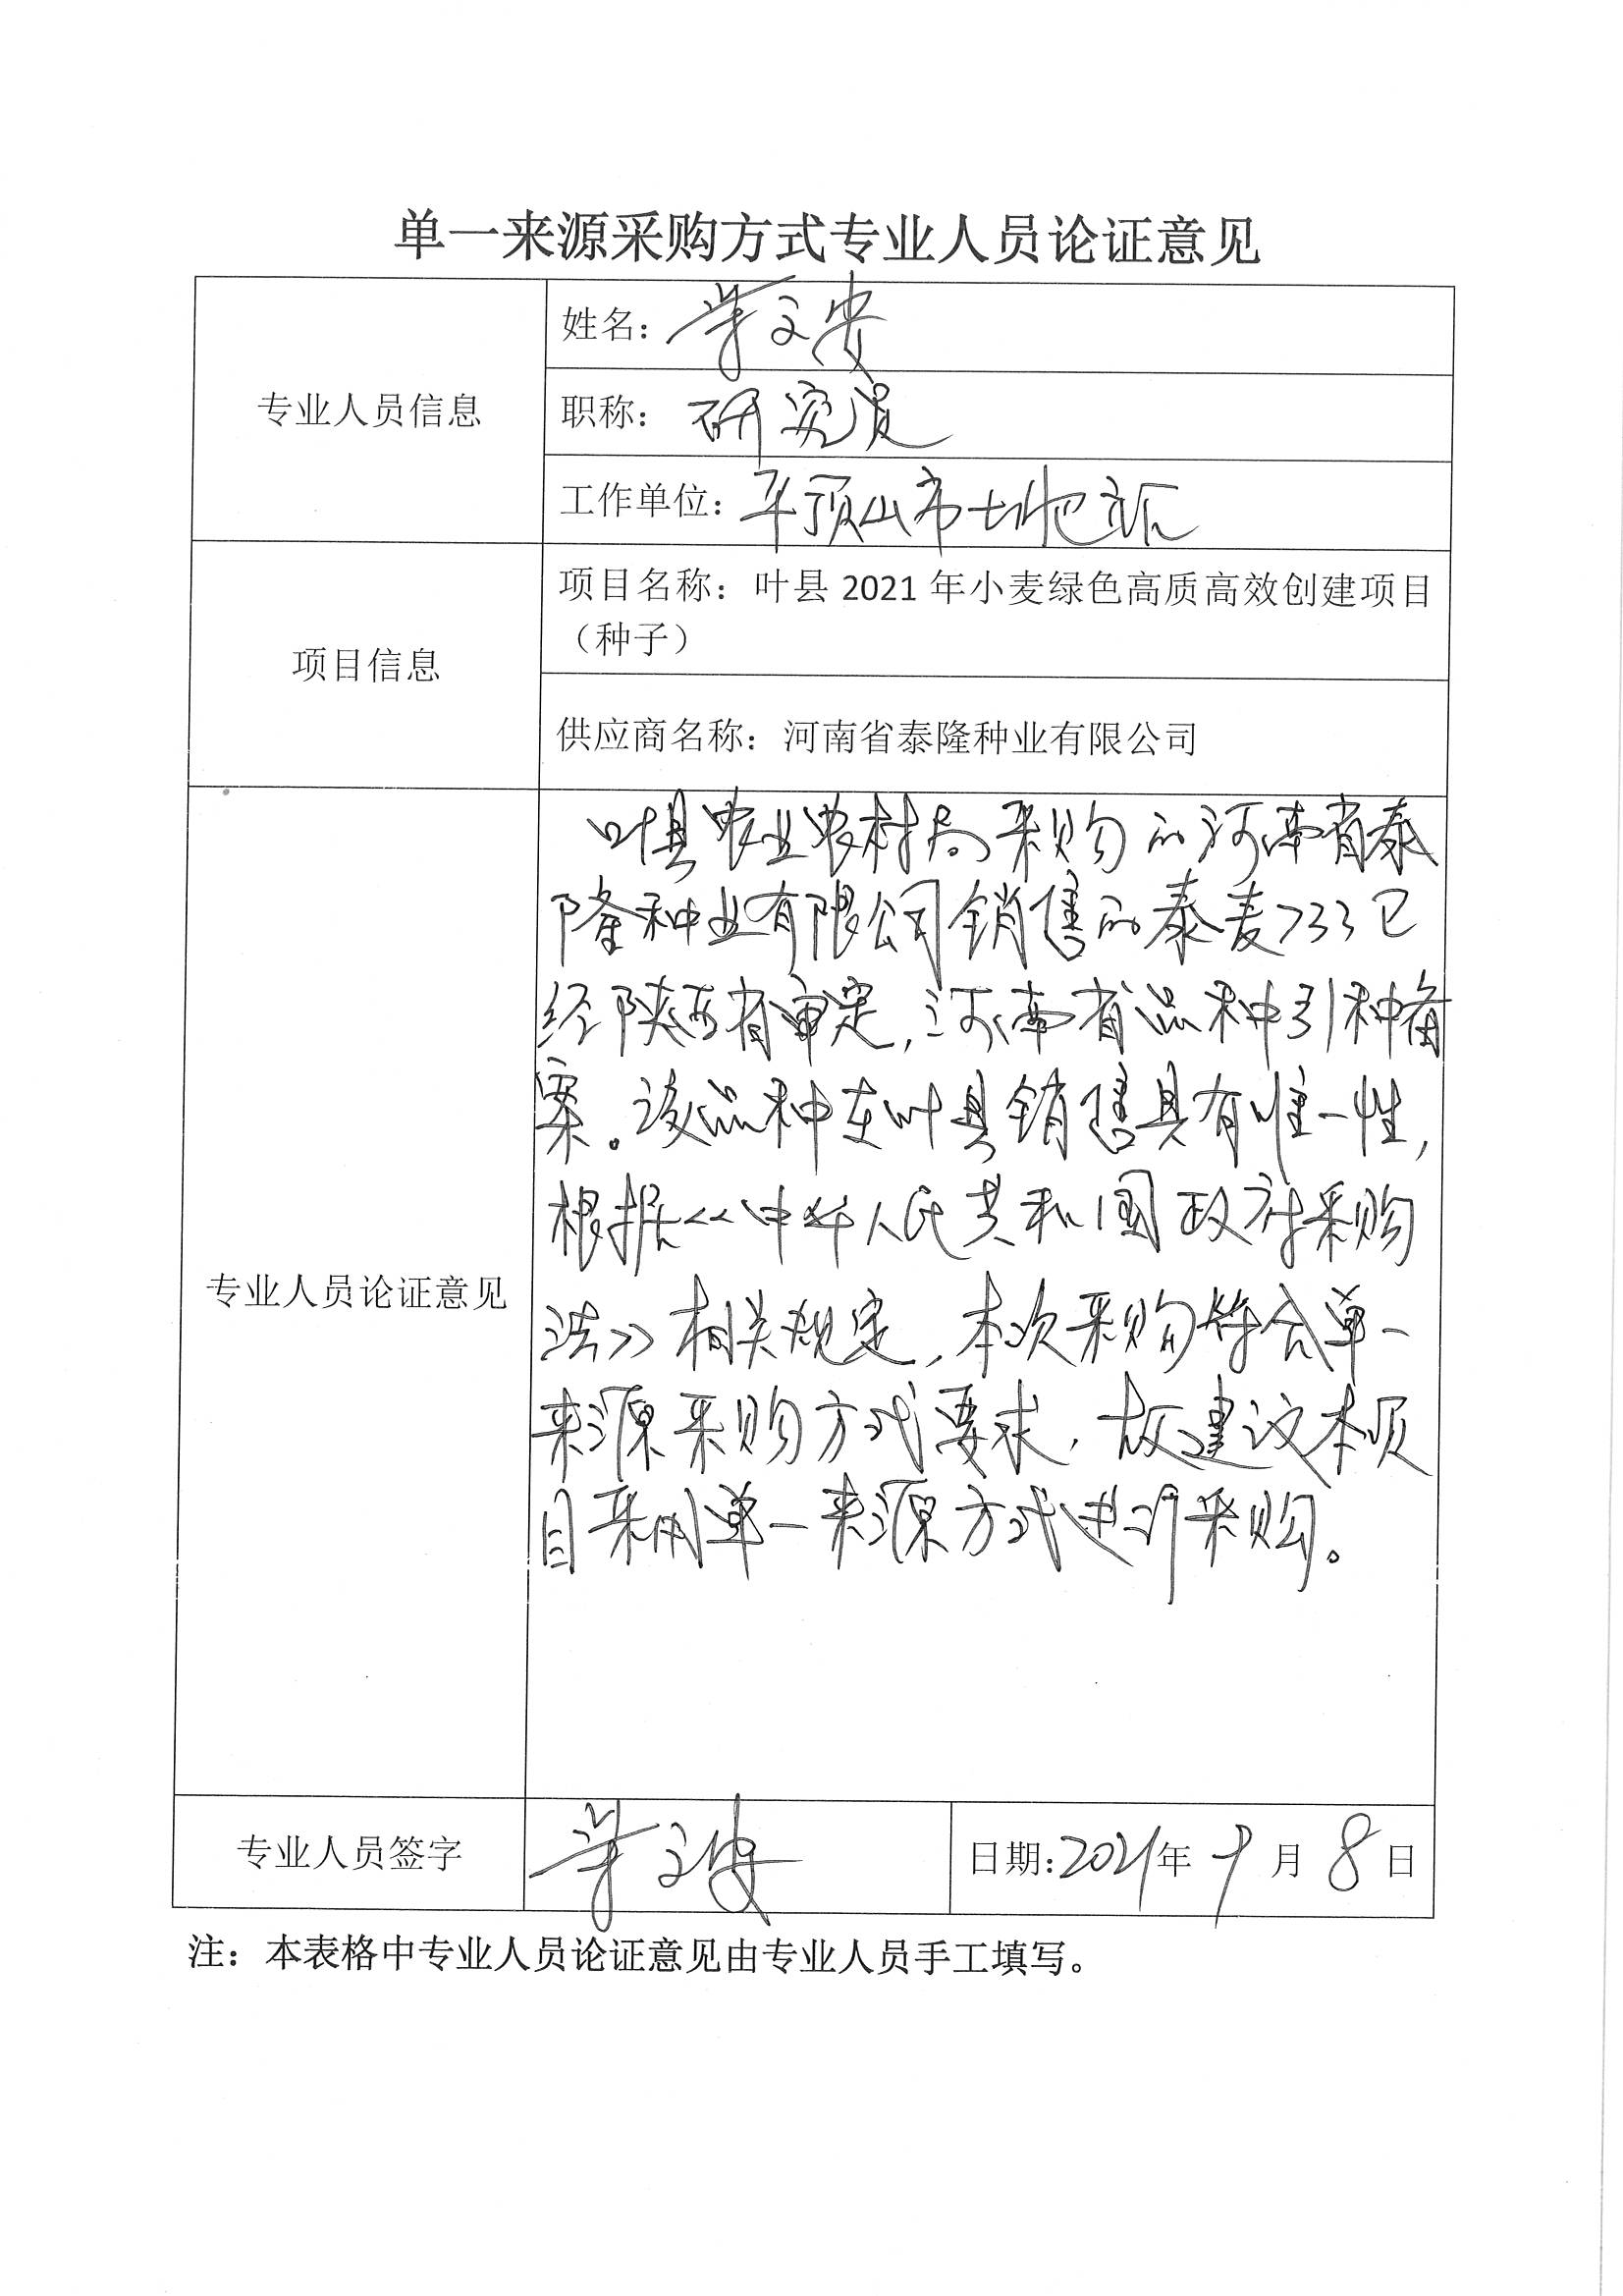 单一来源采购方式专业人员论证意见
专业人员信息
姓名：文安
职称：研究员
工作单位：平顶山市土肥站
项目信息
项目名称：叶县 2021 年小麦绿色高质高效创建项目
（种子）
供应商名称：河南省泰隆种业有限公司
专业人员论证意见
叶县农业农村局采购的河南省泰
隆种业有限公司销售的泰麦733已
经陕西省审定，河南省品种引种备
案。该品种在叶县销售具有唯一性，
根据<<中华人民共和国政府采购
法>>相关规定，本次采购符合单一
来源采购方式要求，故建议本项
目采用单一来源方式进行采购。
专业人员签字
文安
日期：2021年9月8日
注：本表格中专业人员论证意见由专业人员手工填写。